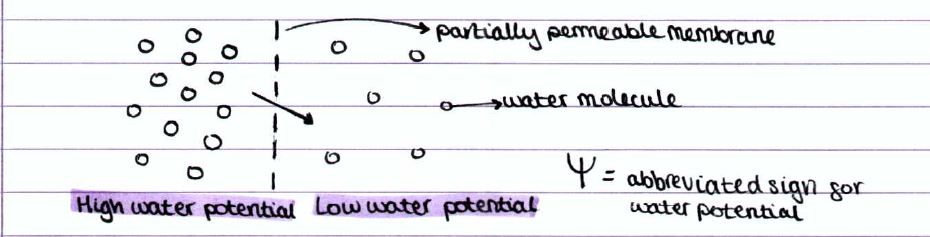 partially permeable membrane
water molecule
Ψ = abbreviated sign for
water potential
High water potential Low water potential